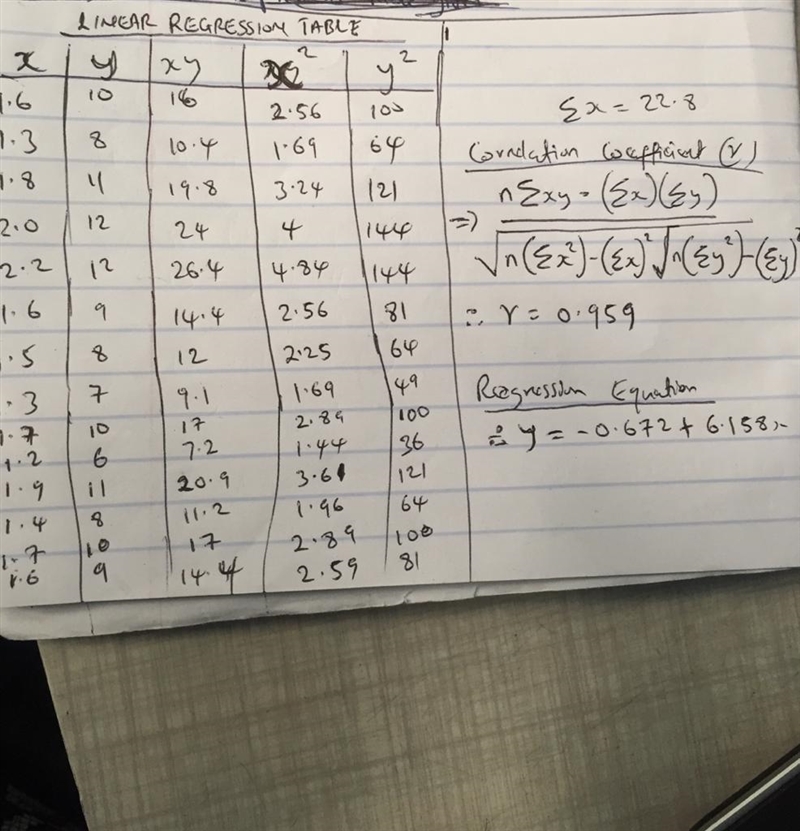 LINEAR REGRESSION TABLE
x y xy x² y²
1.6 10 16 2.56 100
1.3 8 10.4 1.69 64
1.8 11 19.8 3.24 121
2.0 12 24 4 144
2.2 12 26.4 4.84 144
1.6 9 14.4 2.56 81
.5 8 12 2.25 64
.3 7 9.1 1.69 49
1.7 10 17 2.89 100
1.2 6 7.2 1.44 36
1.9 11 20.9 3.61 121
1.4 8 11.2 1.96 64
1.7 10 17 2.89 100
1.6 9 14.4 2.59 81
Σx = 22.8
Correlation Coefficient (r)
⇒ nΣxy - (Σx)(Σy)
√n(Σx²)-(Σx)² √n(Σy²)-(Σy)²
∴ r = 0.959
Regression Equation
∴ y = -0.672 + 6.158x